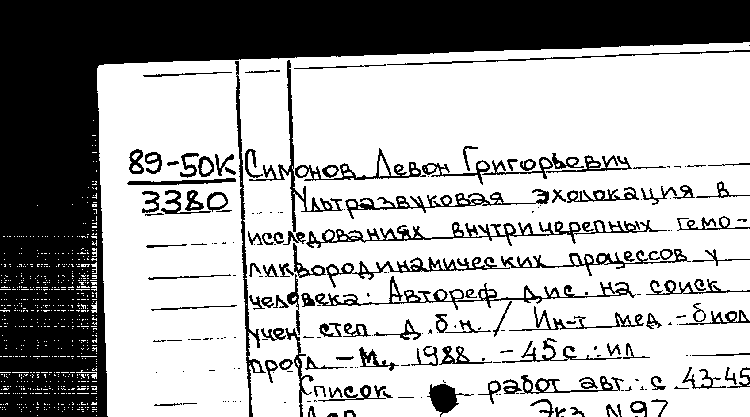 89-50К Симонов Левон Григорьевич
3380 Ультразвуковая эхолокация в
исследованиях внутричерепных гемо-
ликвородинамических процессов у
человека: Автореф. дис. на соиск
учен степ. д.б.н. / Ин-т мед.-биол
пробл. - М., 1988. - 45 с.: ил
Список работ авт.: с. 43-45
Экз. N 97